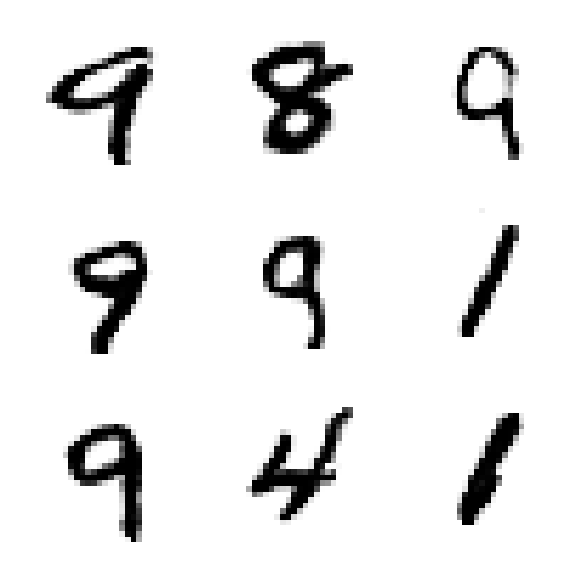 9 8 9
9 9 1
9 4 1